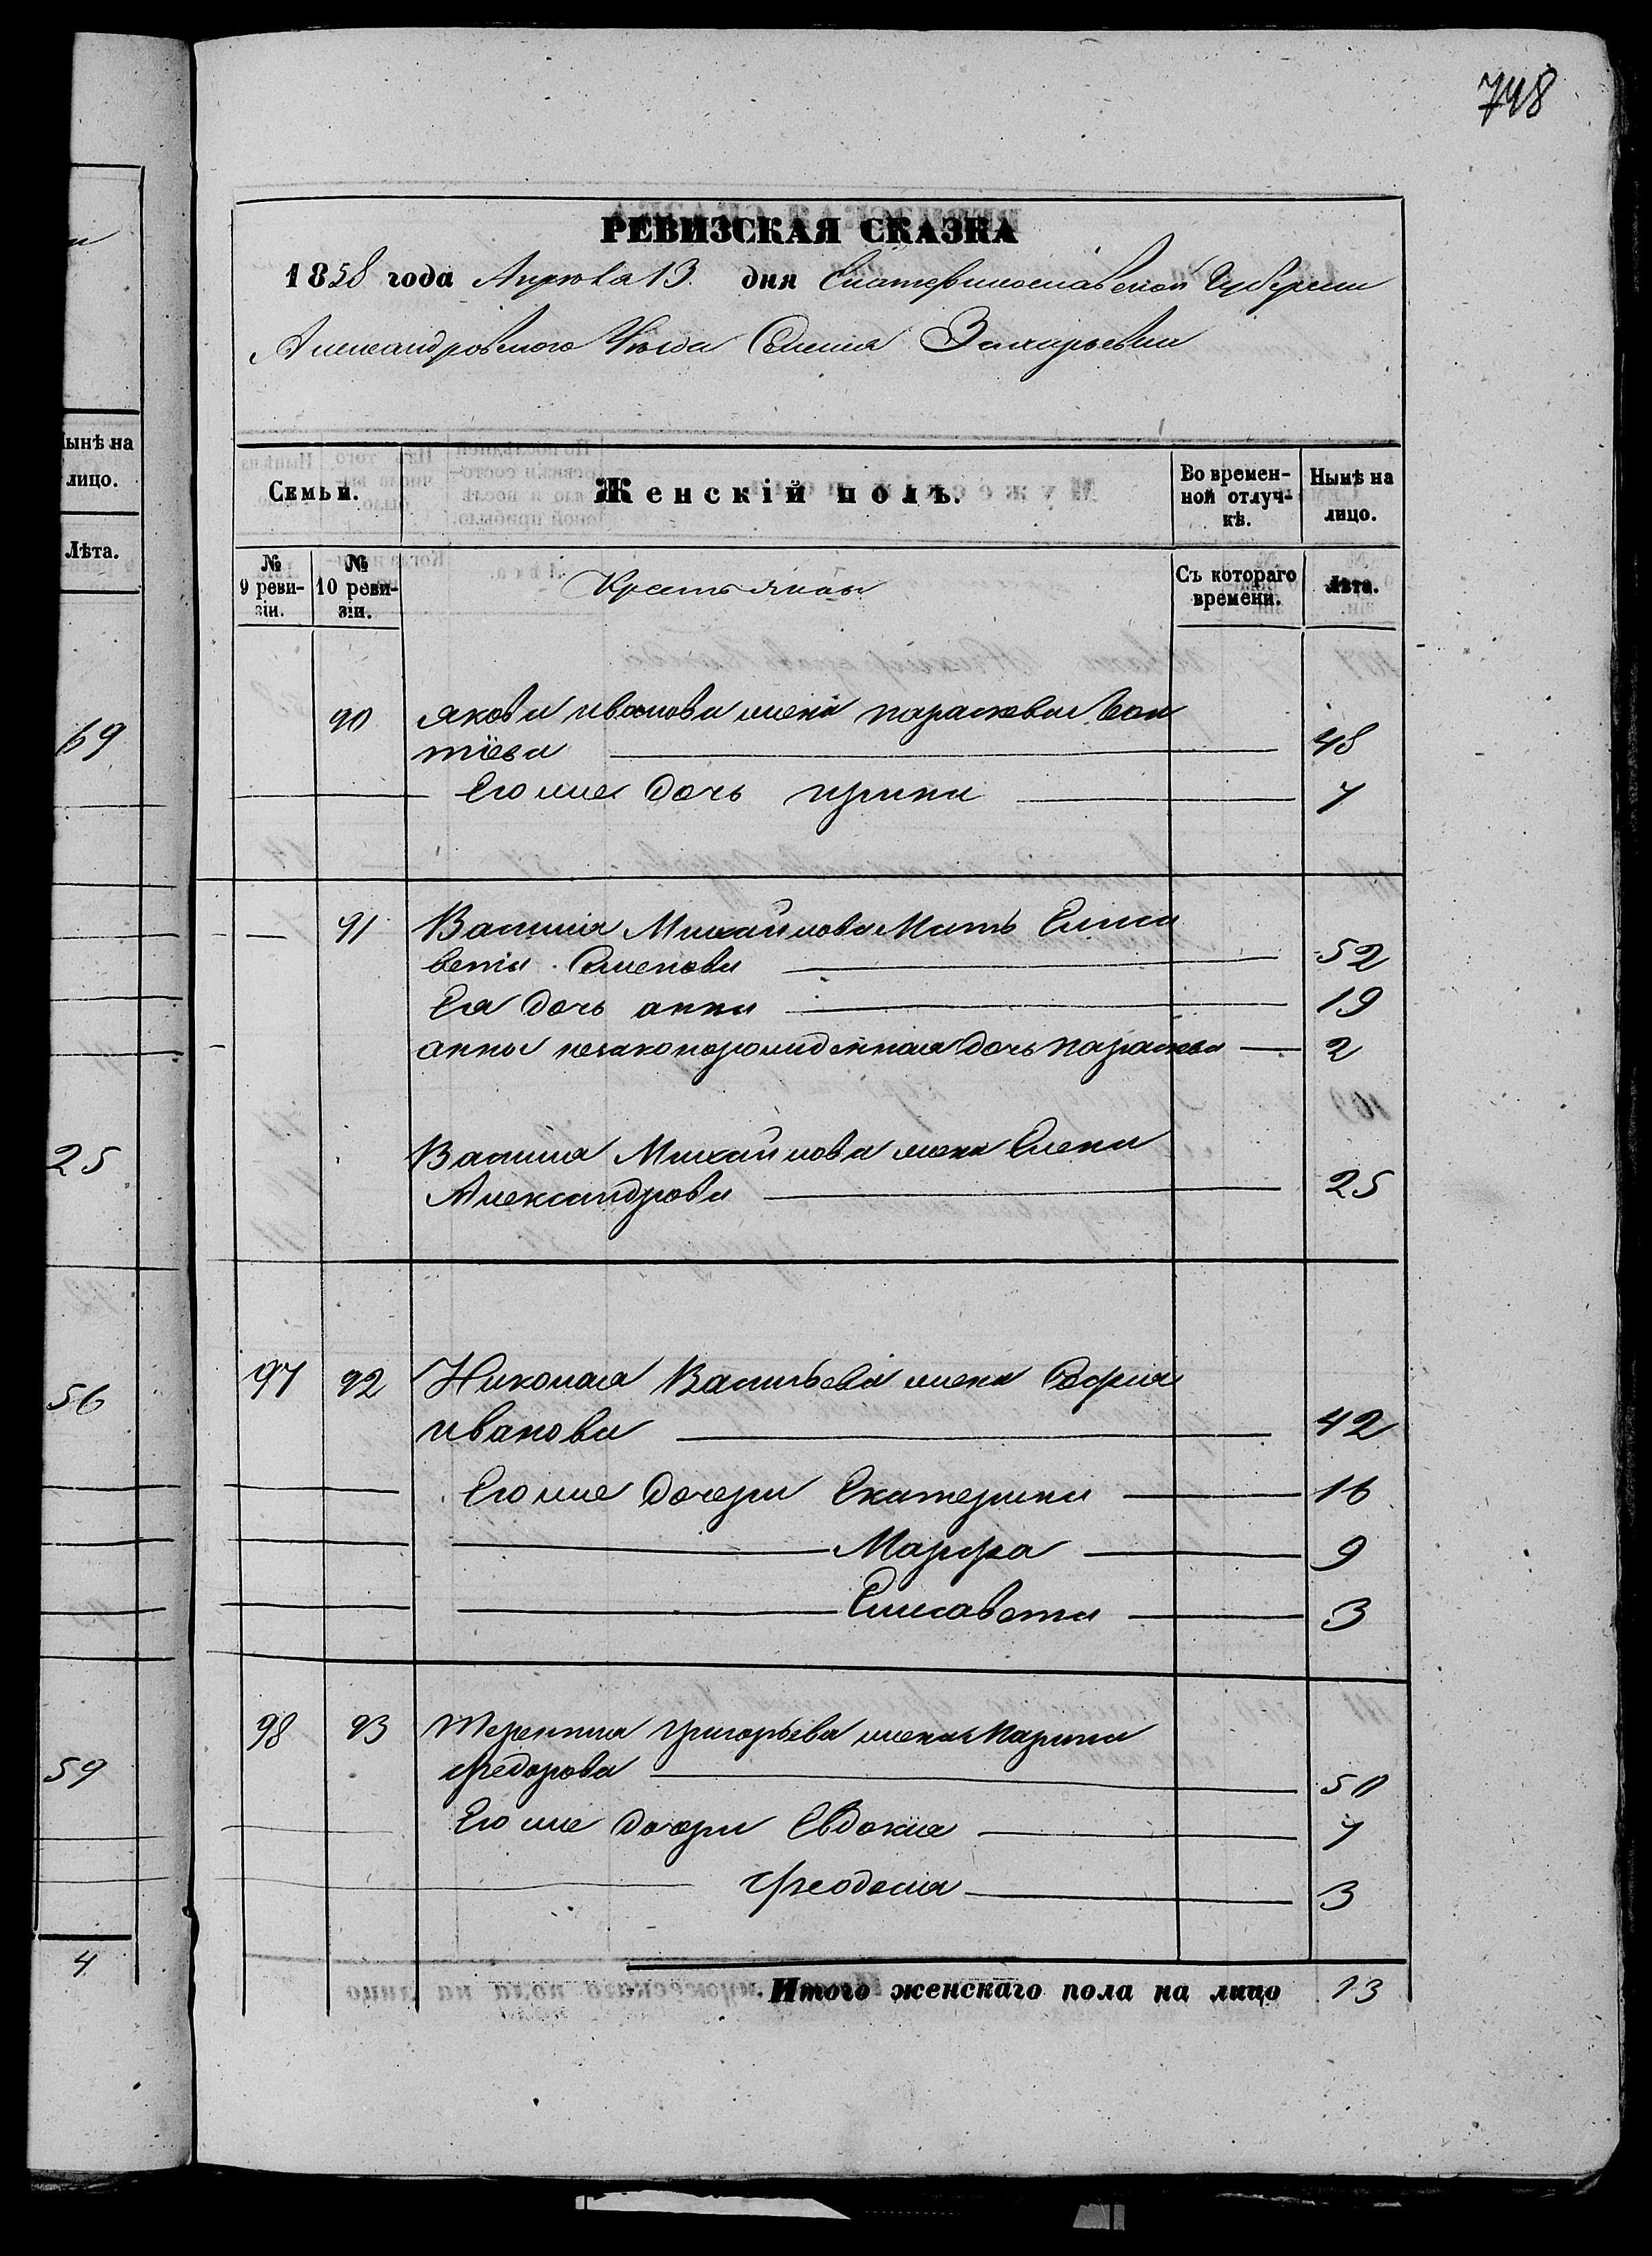 748
РЕВИЗСКАЯ СКАЗКА
1858 года Апреля 13. дня Екатеринославской Губернии
Александровского Уезда Селения Захарьевки
Семьи.
Женскій полъ.
Во времен-
ной отлуч-
кѣ.
Нынѣ на
лицо.
№
9 реви-
зіи.
№
10 реви-
зіи.
Крестьянам
Съ котораго
времени.
Лѣта.
90 якова иванова жена параскева
тіева 48
Его же дочь ирина 7
91 Василия Михайлова Мать Елиса
вета Семенова 52
Ея дочь анна 19
анны незаконорожденная дочь параскева 2
Василия Михайлова жена Елена
Александрова 25
97 92 Николая Васильева жена София
иванова 42
Его же дочери Екатерина 16
Марфа 9
Елисавета 3
98 93 терентия григорьева жена Марина
федорова 50
Его же дочери Евдокия 7
феодосия 3
Итого женскаго пола на лицо 13
ынѣ на
лицо.
Лѣта.
69
25
56
59
4